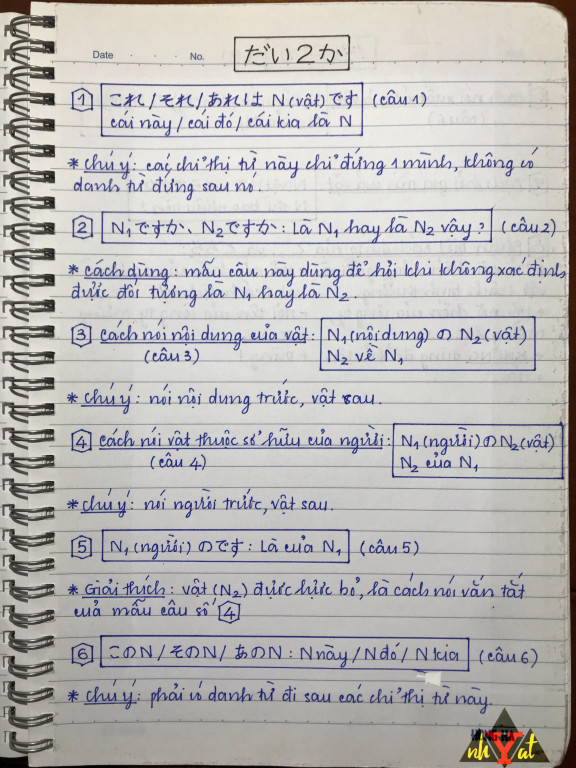 Date No.
だい2か
1 これ/それ/あれは N (vật) です (câu 1)
cái này/cái đó/cái kia là N
* chú ý: các chỉ thị từ này chỉ đứng 1 mình, không có
danh từ đứng sau nó.
2 N₁ですか、N₂ですか: Là N₁ hay là N₂ vậy? (câu 2)
* cách dùng: mẫu câu này dùng để hỏi khi không xác định
được đối tượng là N₁ hay là N₂.
3 cách nói nội dung của vật: N₁ (nội dung) の N₂ (vật)
(câu 3) N₂ về N₁
* chú ý: nói nội dung trước, vật sau.
4 cách nói vật thuộc sở hữu của người: N₁ (người) の N₂ (vật)
(câu 4) N₂ của N₁
* chú ý: nói người trước, vật sau.
5 N₁ (người) のです: Là của N₁ (câu 5)
* Giải thích: vật (N₂) được lược bỏ, là cách nói vắn tắt
của mẫu câu số 4
6 このN/そのN/あのN: N này/N đó/N kia (câu 6)
* chú ý: phải có danh từ đi sau các chỉ thị từ này.
nhYat